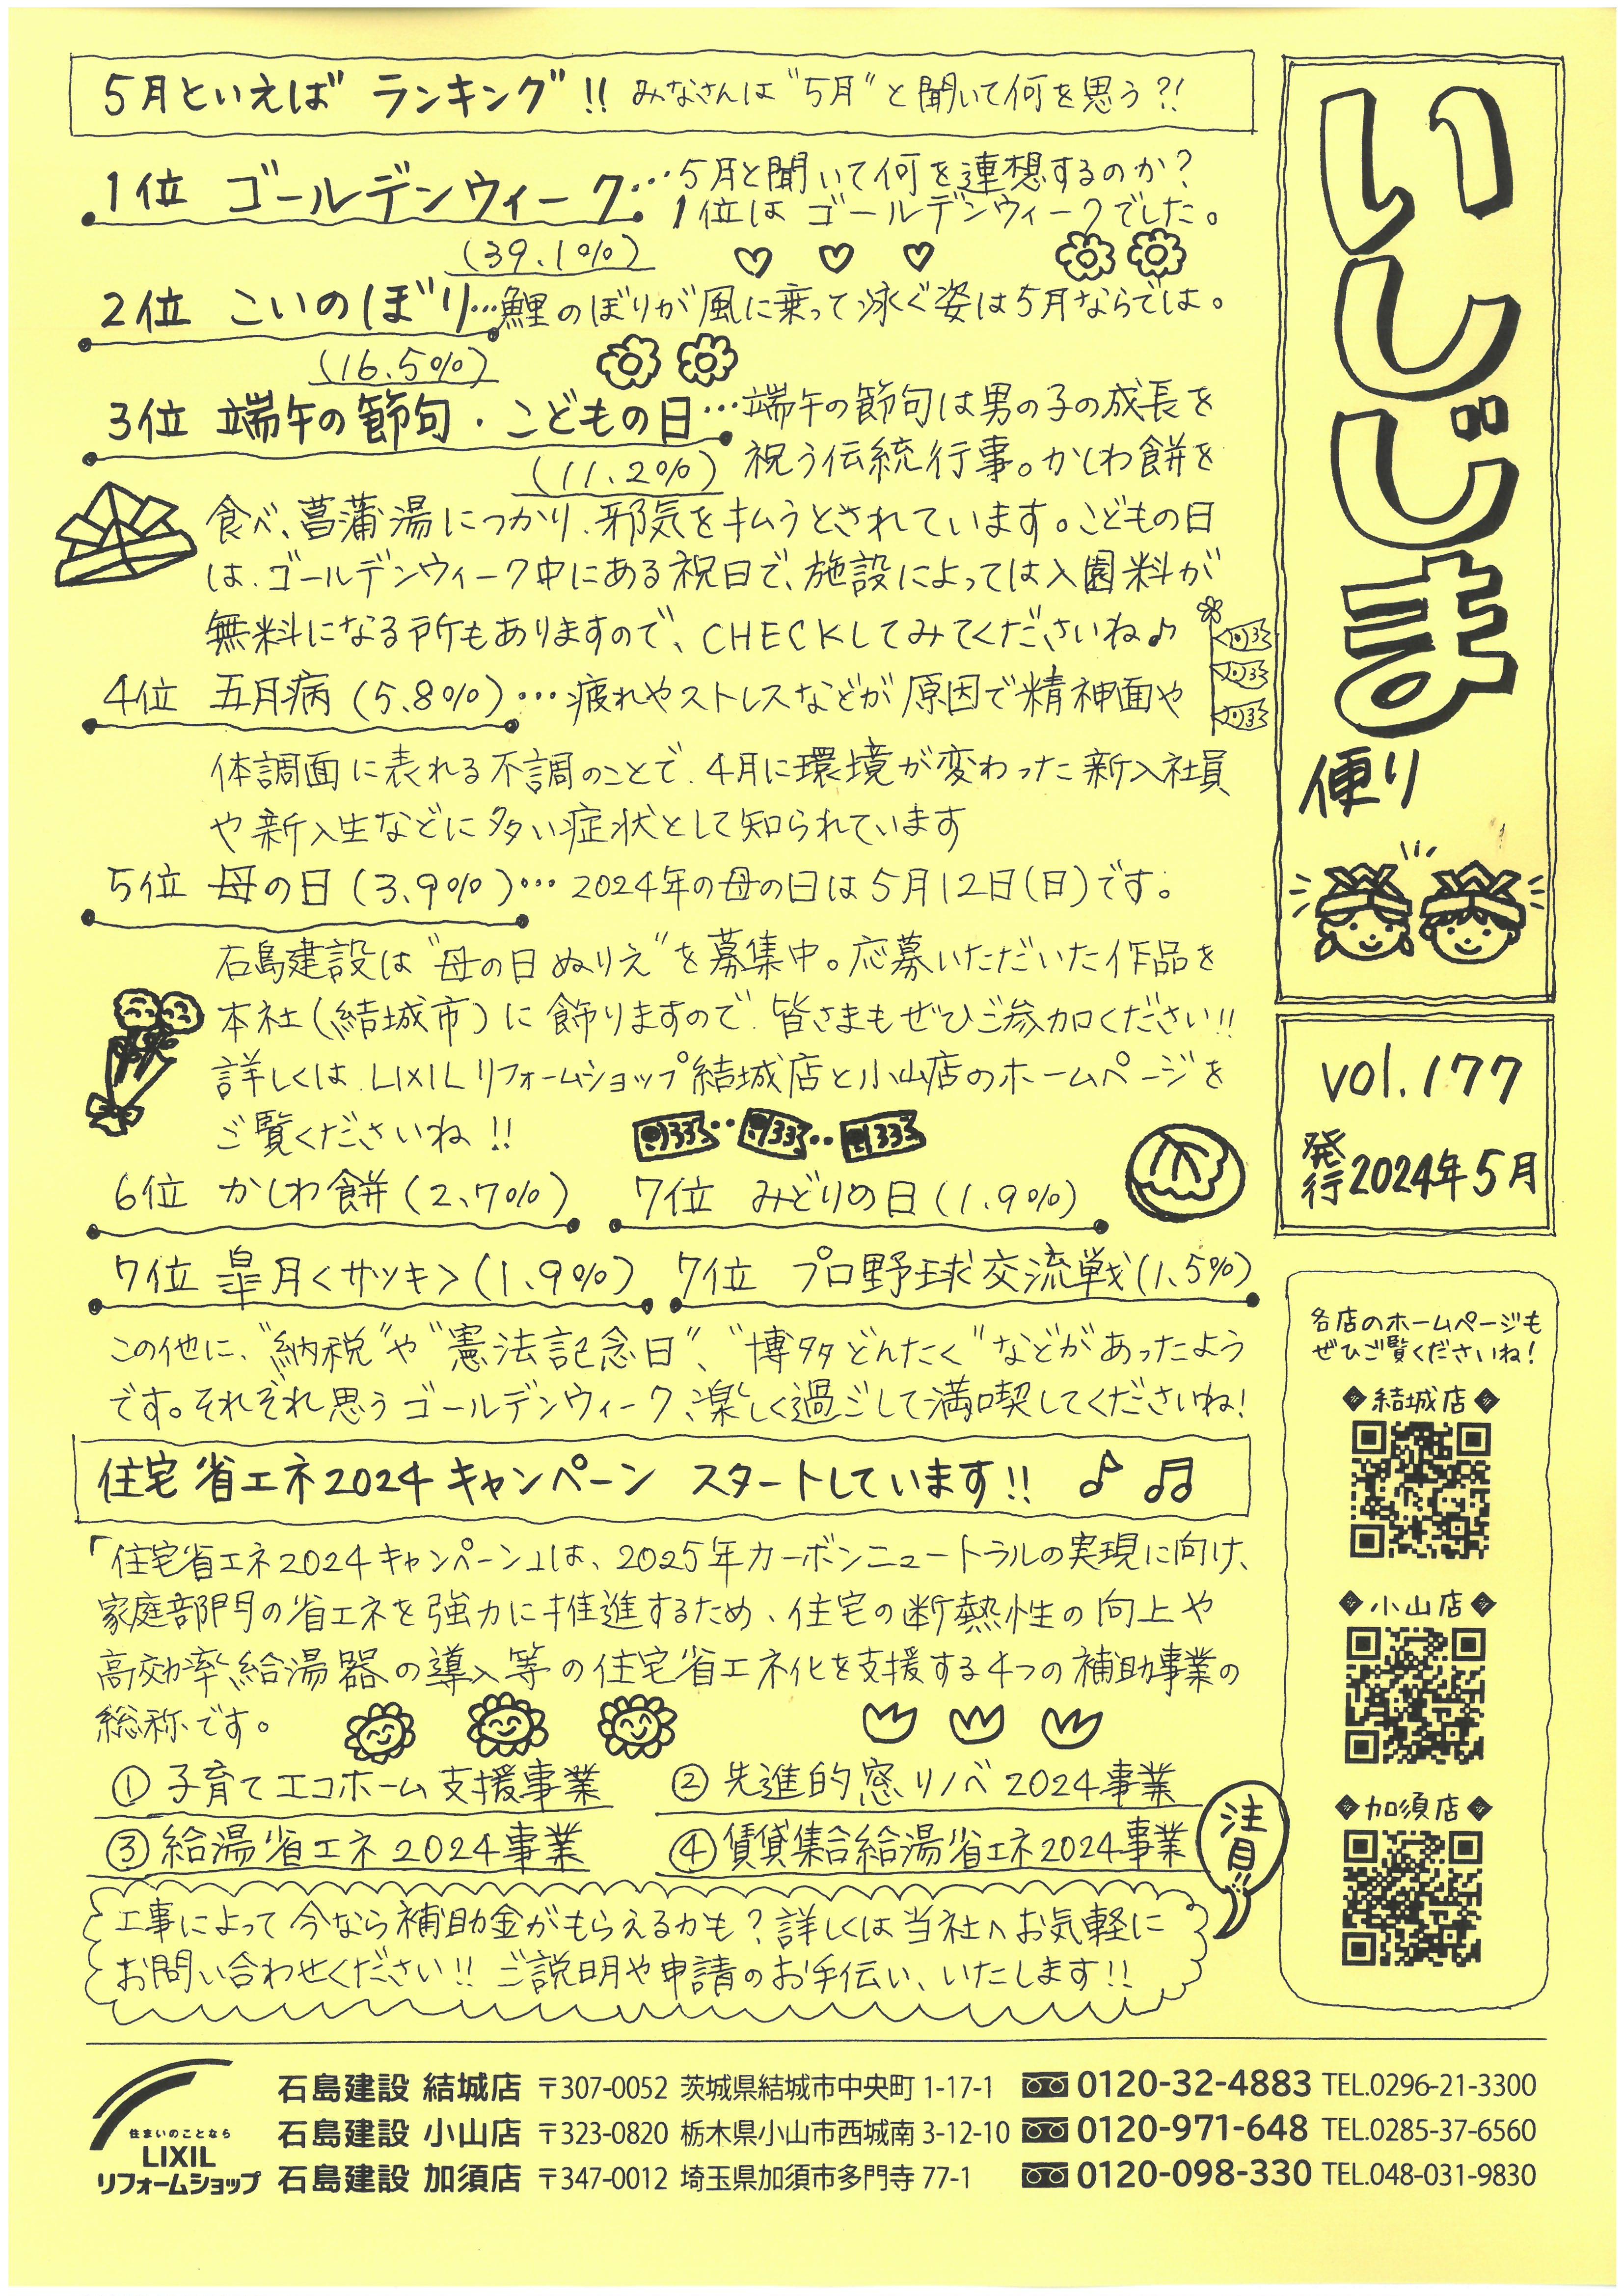 5月といえば ランキング!! みなさんは"5月"と聞いて何を思う?!
1位 ゴールデンウィーク…5月と聞いて何を連想するのか?
1位は ゴールデンウィークでした。
(39.1%)
2位 こいのぼり…鯉のぼりが風に乗って泳ぐ姿は5月ならでは。
(16.5%)
3位 端午の節句・こどもの日…端午の節句は男の子の成長を
(11.2%) 祝う伝統行事。かしわ餅を
食べ、菖蒲湯につかり、邪気を払うとされています。こどもの日
は、ゴールデンウィーク中にある祝日で、施設によっては入園料が
無料になる所もありますので、CHECKしてみてくださいね♪
4位 五月病(5.8%)…疲れやストレスなどが原因で精神面や
体調面に表れる不調のことで、4月に環境が変わった新入社員
や新入生などに多い症状として知られています
5位 母の日(3.9%)…2024年の母の日は5月12日(日)です。
石島建設は"母の日ぬりえ"を募集中。応募いただいた作品を
本社(結城市)に飾りますので、皆さまもぜひご参加ください!!
詳しくは、LIXILリフォームショップ結城店と小山店のホームページを
ご覧くださいね!!
6位 かしわ餅(2.7%) 7位 みどりの日(1.9%)
7位 皐月<サツキ>(1.9%) 7位 プロ野球交流戦(1.5%)
この他に、"納税"や"憲法記念日"、"博多どんたく"などがあったよう
です。それぞれ思うゴールデンウィーク、楽しく過ごして満喫してくださいね!
住宅省エネ2024キャンペーン スタートしています!! ♪ ♫
「住宅省エネ2024キャンペーン」は、2025年カーボンニュートラルの実現に向け、
家庭部門の省エネを強力に推進するため、住宅の断熱性の向上や
高効率給湯器の導入等の住宅省エネ化を支援する4つの補助事業の
総称です。
①子育てエコホーム支援事業 ②先進的窓リノベ2024事業
③給湯省エネ2024事業 ④賃貸集合給湯省エネ2024事業
注目!!
工事によって今なら補助金がもらえるかも?詳しくは当社へお気軽に
お問い合わせください!! ご説明や申請のお手伝い、いたします!!
いしじま
便り
vol.177
発行2024年5月
各店のホームページも
ぜひご覧くださいね!
◆結城店◆
◆小山店◆
◆加須店◆
住まいのことなら
LIXIL
リフォームショップ
石島建設 結城店 〒307-0052 茨城県結城市中央町 1-17-1 0120-32-4883 TEL.0296-21-3300
石島建設 小山店 〒323-0820 栃木県小山市西城南 3-12-10 0120-971-648 TEL.0285-37-6560
石島建設 加須店 〒347-0012 埼玉県加須市多門寺 77-1 0120-098-330 TEL.048-031-9830